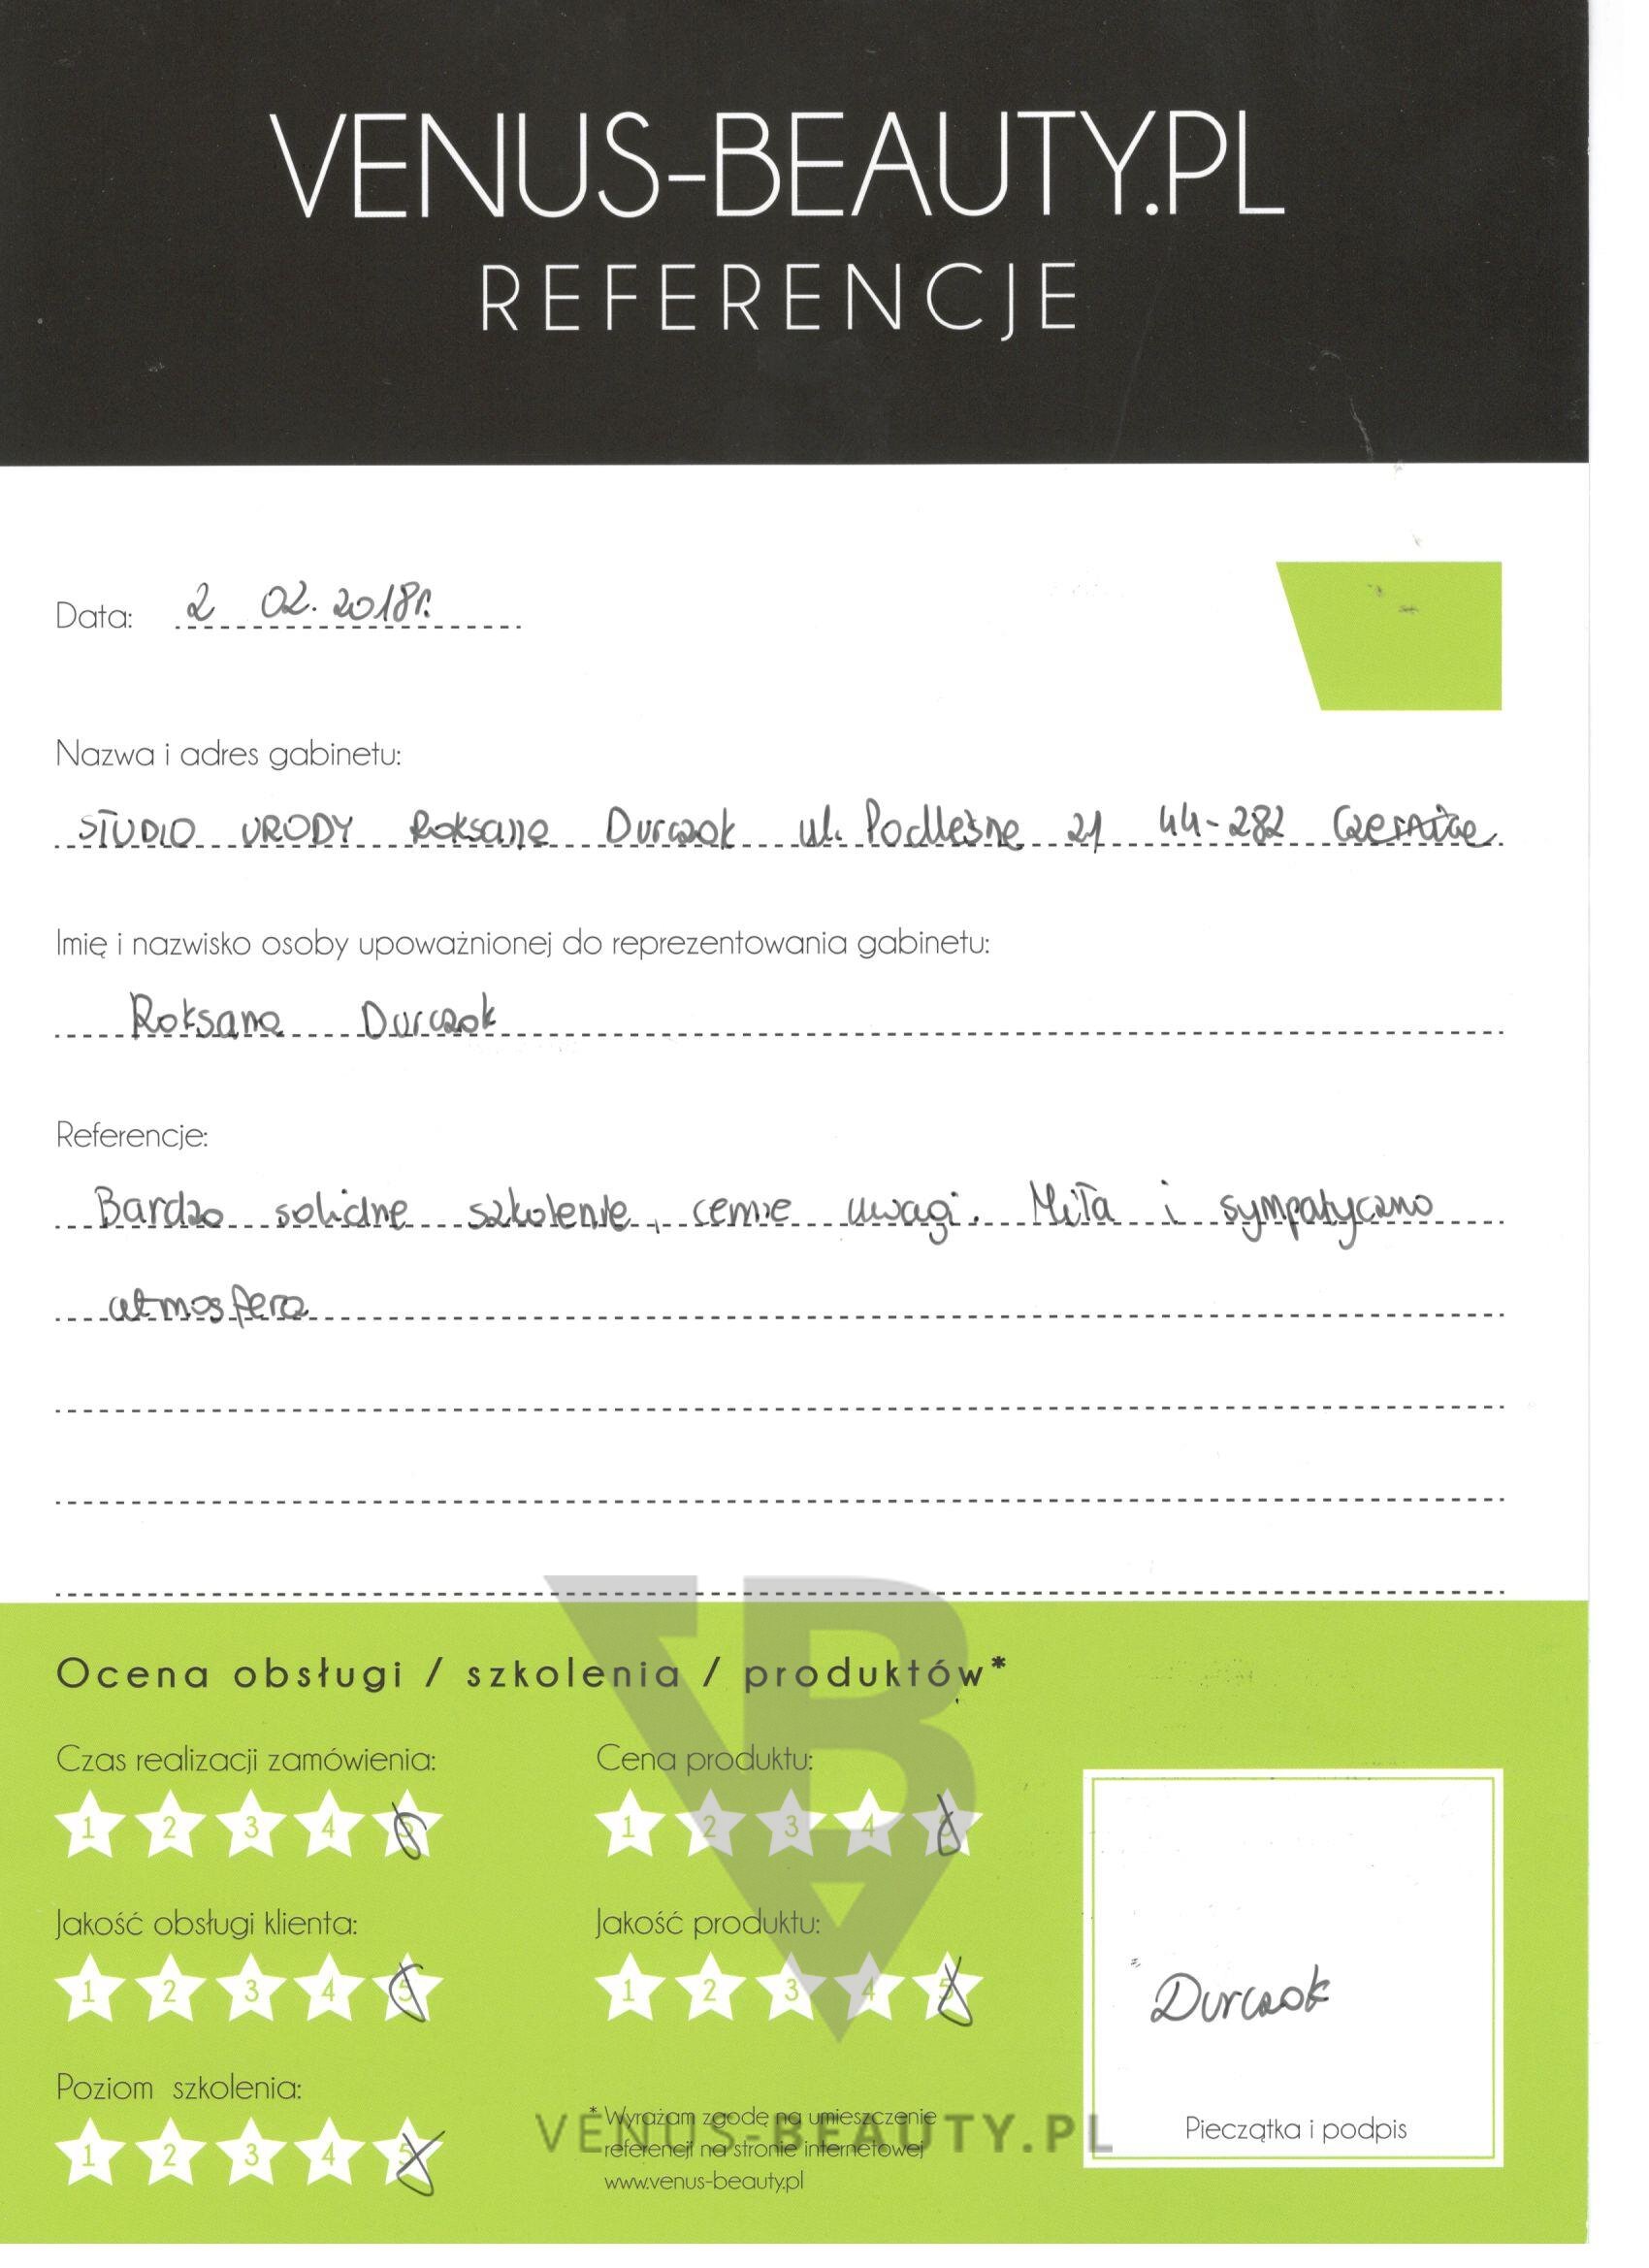 VENUS-BEAUTY.PL
REFERENCJE
Data: 2 02. 2018r.
Nazwa i adres gabinetu:
STUDIO URODY Roksana Durczok ul. Podleśna 21 44-282 Czernica
Imię i nazwisko osoby upoważnionej do reprezentowania gabinetu:
Roksana Durczok
Referencje:
Bardzo solidne szkolenie, cenne uwagi. Miła i sympatyczna
atmosfera
Ocena obsługi / szkolenia / produktów*
Czas realizacji zamówienia:
1 2 3 4 5
Cena produktu:
1 2 3 4 5
Jakość obsługi klienta:
1 2 3 4 5
Jakość produktu:
1 2 3 4 5
Poziom szkolenia:
1 2 3 4 5
* Wyrażam zgodę na umieszczenie
referencji na stronie internetowej
www.venus-beauty.pl
VENUS-BEAUTY.PL
Durczok
Pieczątka i podpis